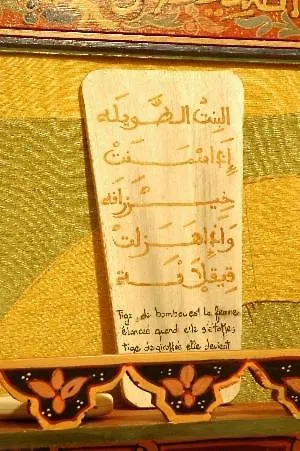 البنت الطويله
إذا سمنت
خيزرانه
وإذا هزلت
فيقلانة
Tige de bambou est la femme
élancée quand elle s'étoffe,
tige de girofle elle devient